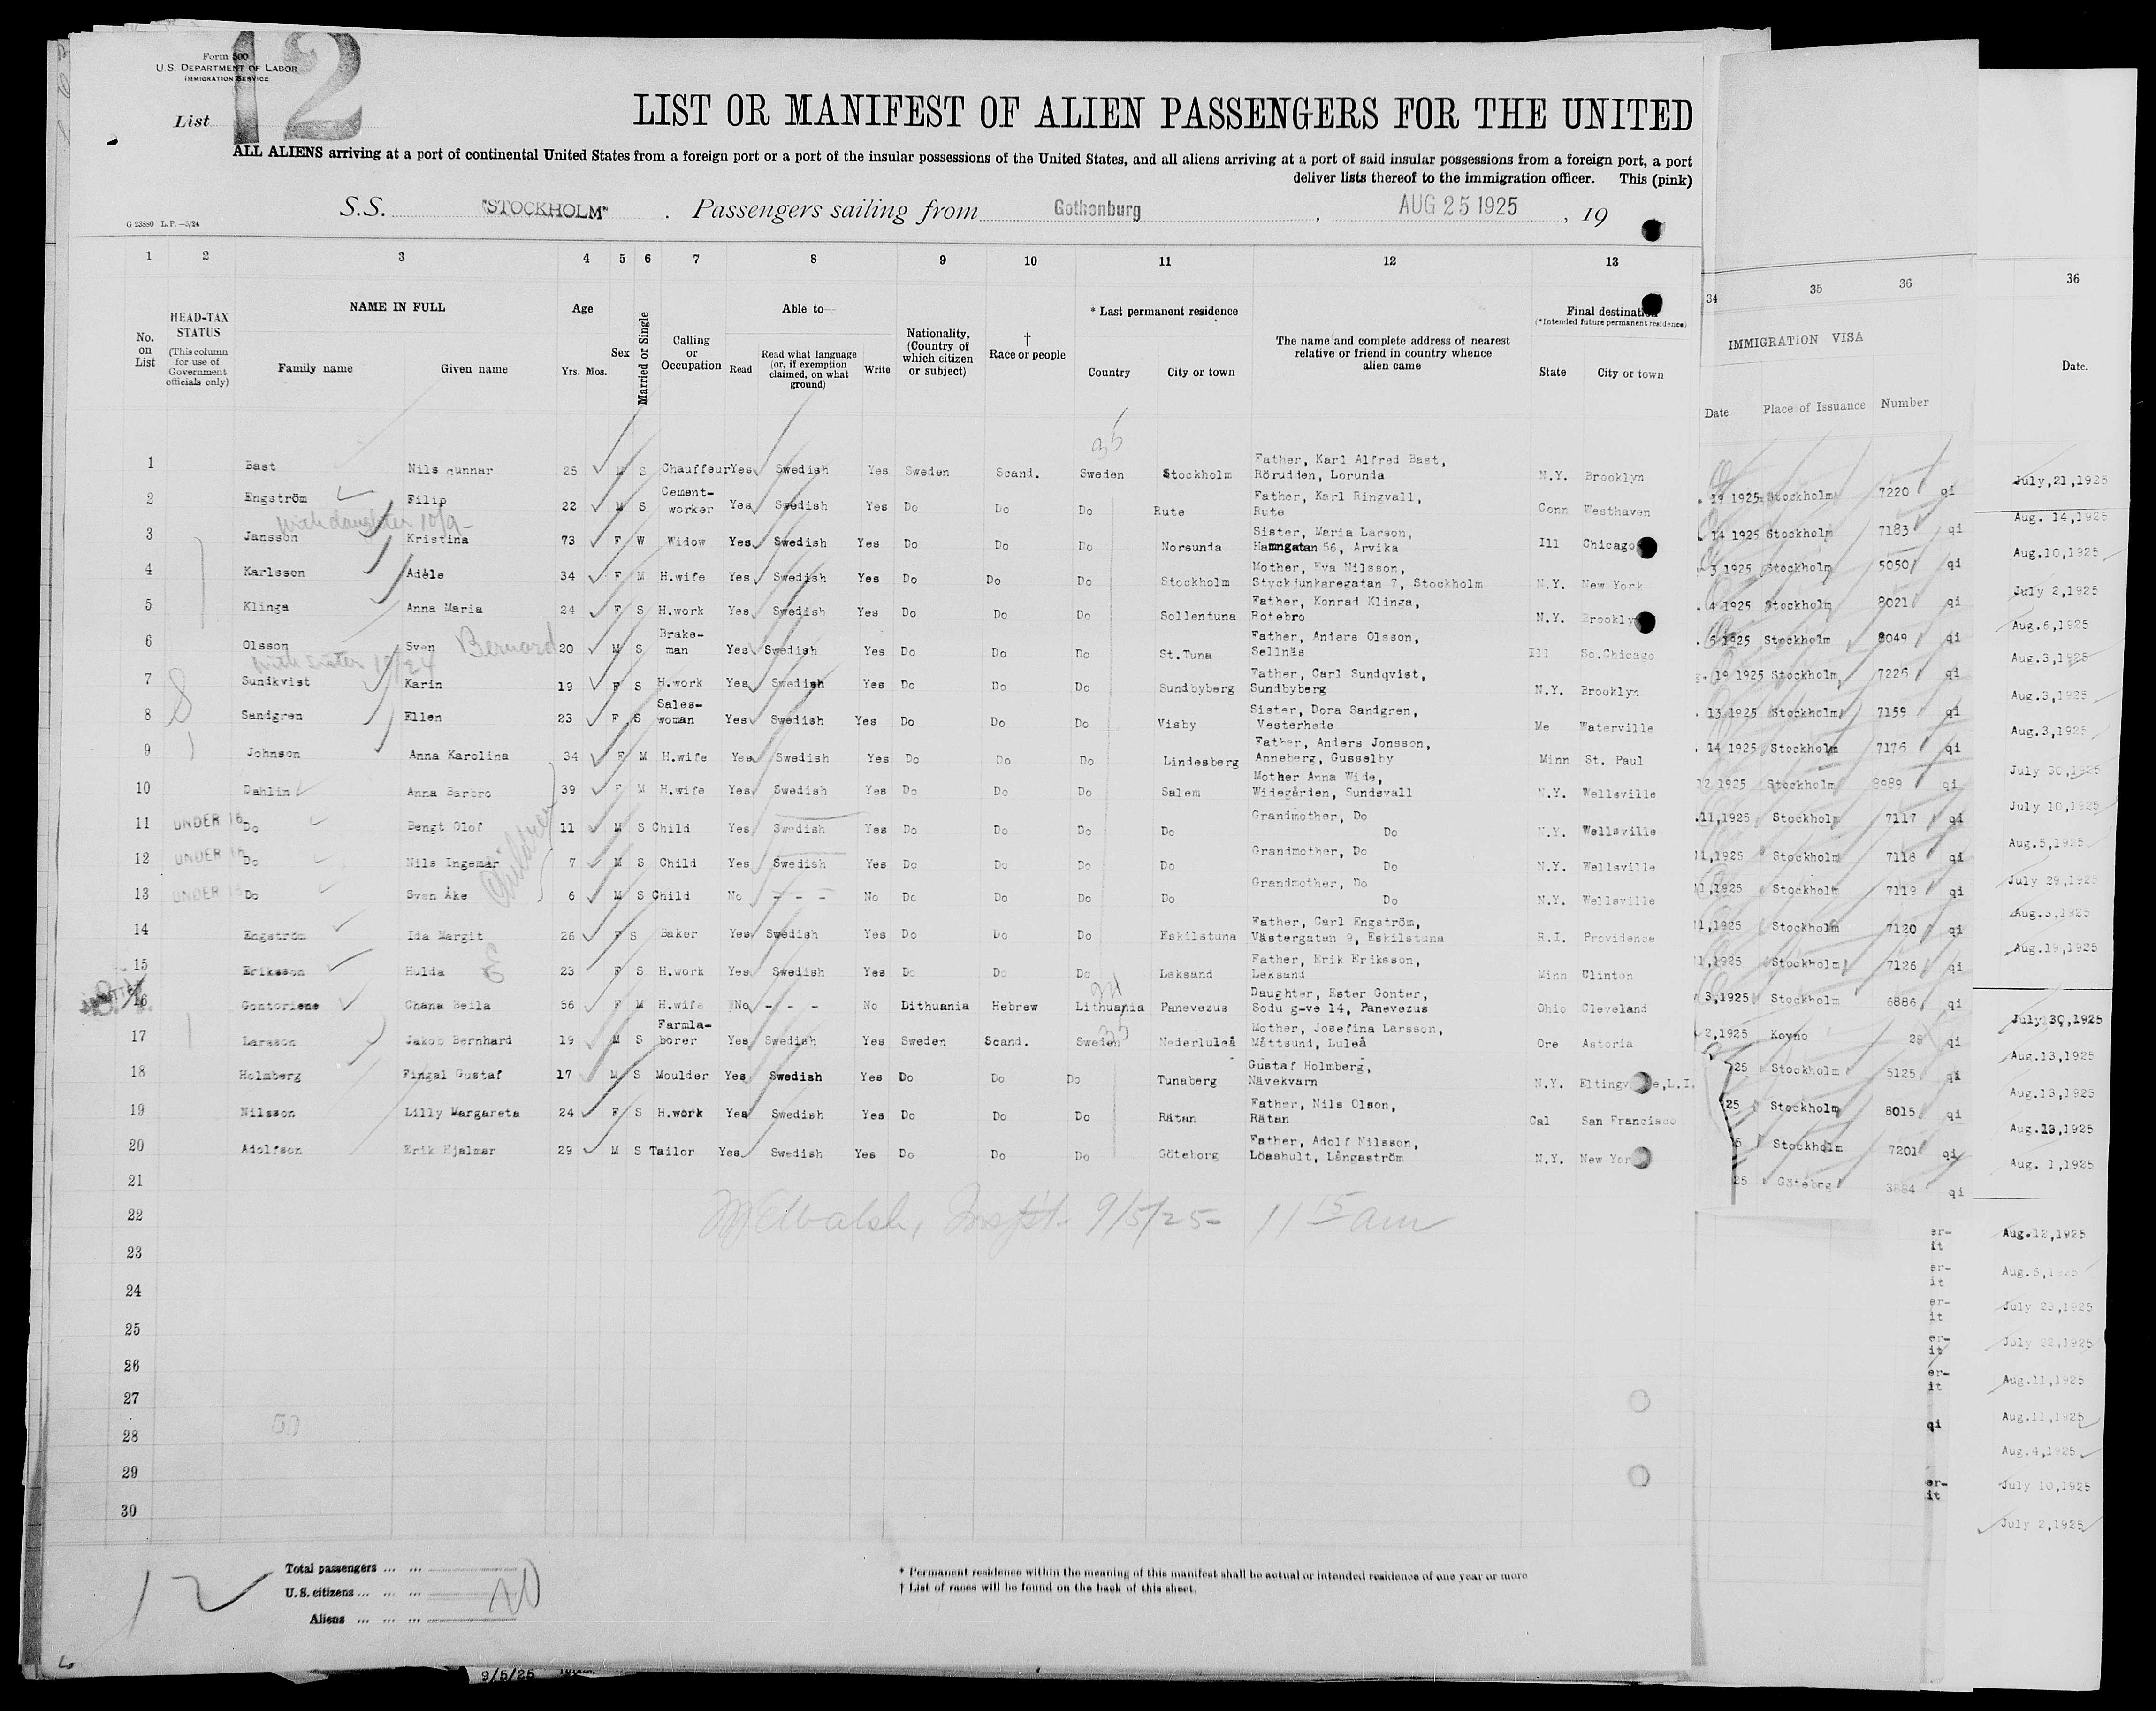 Form 500
U.S. DEPARTMENT OF LABOR
IMMIGRATION SERVICE
List 12
LIST OR MANIFEST OF ALIEN PASSENGERS FOR THE UNITED
ALL ALIENS arriving at a port of continental United States from a foreign port or a port of the insular possessions of the United States, and all aliens arriving at a port of said insular possessions from a foreign port, a port
deliver lists thereof to the immigration officer. This (pink)
S.S. "STOCKHOLM" . Passengers sailing from Gothenburg , AUG 25 1925 , 19
G 23880 L.P.—5/24
1 2 3 4 5 6 7 8 9 10 11 12 13
34 35 36
36
No. on List
HEAD-TAX STATUS
(This column for use of Government officials only)
NAME IN FULL
Family name Given name
Age
Yrs. Mos.
Sex
Married or Single
Calling or Occupation
Able to—
Read
Read what language (or, if exemption claimed, on what ground)
Write
Nationality. (Country of which citizen or subject)
† Race or people
* Last permanent residence
Country City or town
The name and complete address of nearest relative or friend in country whence alien came
Final destination
(*Intended future permanent residence)
State City or town
IMMIGRATION VISA
Date Place of Issuance Number
Date.
35
1 Bast Nils Gunnar 25 M S Chauffeur Yes Swedish Yes Sweden Scand. Sweden Stockholm Father, Karl Alfred Bast, Rörudden, Lorunda N.Y. Brooklyn
2 Engström Filip 22 M S Cement-worker Yes Swedish Yes Do Do Do Rute Father, Karl Ringvall, Rute Conn Westhaven
with daughter 10/9-
3 Jansson Kristina 73 F W Widow Yes Swedish Yes Do Do Do Norsunda Sister, Maria Larson, Hamngatan 56, Arvika Ill Chicago
4 Karlsson Adèle 34 F M H.wife Yes Swedish Yes Do Do Do Stockholm Mother, Eva Nilsson, Styckjunkaregatan 7, Stockholm N.Y. New York
5 Klinga Anna Maria 24 F S H.work Yes Swedish Yes Do Do Do Sollentuna Father, Konrad Klinga, Rotebro N.Y. Brookly
6 Olsson Sven Bernard 20 M S Brake-man Yes Swedish Yes Do Do Do St.Tuna Father, Anders Olsson, Sellnäs Ill So.Chicago
with sister
7 Sundkvist Karin 19 F S H.work Yes Swedish Yes Do Do Do Sundbyberg Father, Carl Sundqvist, Sundbyberg N.Y. Brooklyn
8 Sandgren Ellen 23 F S Sales-woman Yes Swedish Yes Do Do Do Visby Sister, Dora Sandgren, Vesterhede Me Waterville
9 Johnson Anna Karolina 34 F M H.wife Yes Swedish Yes Do Do Do Lindesberg Father, Anders Jonsson, Anneberg, Gusselby Minn St. Paul
10 Dahlin Anna Barbro 39 F M H.wife Yes Swedish Yes Do Do Do Salem Mother Anna Wide, Widegården, Sundsvall N.Y. Wellsville
Children
11 UNDER 16 Do Bengt Olof 11 M S Child Yes Swedish Yes Do Do Do Do Grandmother, Do Do N.Y. Wellsville
12 UNDER 16 Do Nils Ingemar 7 M S Child Yes Swedish Yes Do Do Do Do Grandmother, Do Do N.Y. Wellsville
13 UNDER 16 Do Sven Åke 6 M S Child No - - - No Do Do Do Do Grandmother, Do Do N.Y. Wellsville
14 Engström Ida Margit 26 F S Baker Yes Swedish Yes Do Do Do Eskilstuna Father, Carl Engström, Västergatan 9, Eskilstuna R.I. Providence
15 Eriksson Hulda E 23 F S H.work Yes Swedish Yes Do Do Do Leksand Father, Erik Eriksson, Leksand Minn Clinton
24
16 Gontoriene Chana Beila 56 F M H.wife No - - - No Lithuania Hebrew Lithuania Panevezus Daughter, Ester Gonter, Sodu g-ve 14, Panevezus Ohio Cleveland
35
17 Larsson Jakob Bernhard 19 M S Farmla-borer Yes Swedish Yes Sweden Scand. Sweden Nederluleå Mother, Josefina Larsson, Måttsund, Luleå Ore Astoria
18 Holmberg Fingal Gustaf 17 M S Moulder Yes Swedish Yes Do Do Do Tunaberg Gustaf Holmberg, Nävekvarn N.Y. Eltingv e,L.I.
19 Nilsson Lilly Margareta 24 F S H.work Yes Swedish Yes Do Do Do Rätan Father, Nils Olson, Rätan Cal San Francisco
20 Adolfson Erik Hjalmar 29 M S Tailor Yes Swedish Yes Do Do Do Göteborg Father, Adolf Nilsson, Löashult, Långaström N.Y. New Yor
21
22
Walsh, Inspt. 9/5/25- 11 15 am
23
24
25
26
27
28
29
30
50
19 1925 Stockholm 7220 qi
14 1925 Stockholm 7183 qi
3 1925 Stockholm 5050 qi
4 1925 Stockholm 8021 qi
5 1925 Stockholm 8049 qi
19 1925 Stockholm 7226 qi
13 1925 Stockholm 7159 qi
14 1925 Stockholm 7176 qi
2 1925 Stockholm 8989 qi
11,1925 Stockholm 7117 qi
11,1925 Stockholm 7118 qi
11,1925 Stockholm 7119 qi
11,1925 Stockholm 7120 qi
11,1925 Stockholm 7126 qi
3,1925 Stockholm 6886 qi
2,1925 Kovno 28 qi
25 Stockholm 5125 qi
25 Stockholm 8015 qi
5 Stockholm 7201 qi
25 Göteborg 3884 qi
er-
it
er-
it
er-
it
er-
it
er-
it
qi
er-
it
July,21,1925
Aug. 14,1925
Aug.10,1925
July 2,1925
Aug.6,1925
Aug.3,1925
Aug.3,1925
Aug.3,1925
July 30,1925
July 10,1925
Aug.5,1925
July 29,1925
Aug.3,1925
Aug.19,1925
July 30,1925
Aug.13,1925
Aug.13,1925
Aug.13,1925
Aug. 1,1925
Aug.12,1925
Aug.6,1925
July 23,1925
July 22,1925
Aug.11,1925
Aug.11,1925
Aug.4,1925
July 10,1925
July 2,1925
12
Total passengers ... ...
U.S. citizens ... ... ...
Aliens ... ... ...
20
* Permanent residence within the meaning of this manifest shall be actual or intended residence of one year or more
† List of races will be found on the back of this sheet.
9/5/25